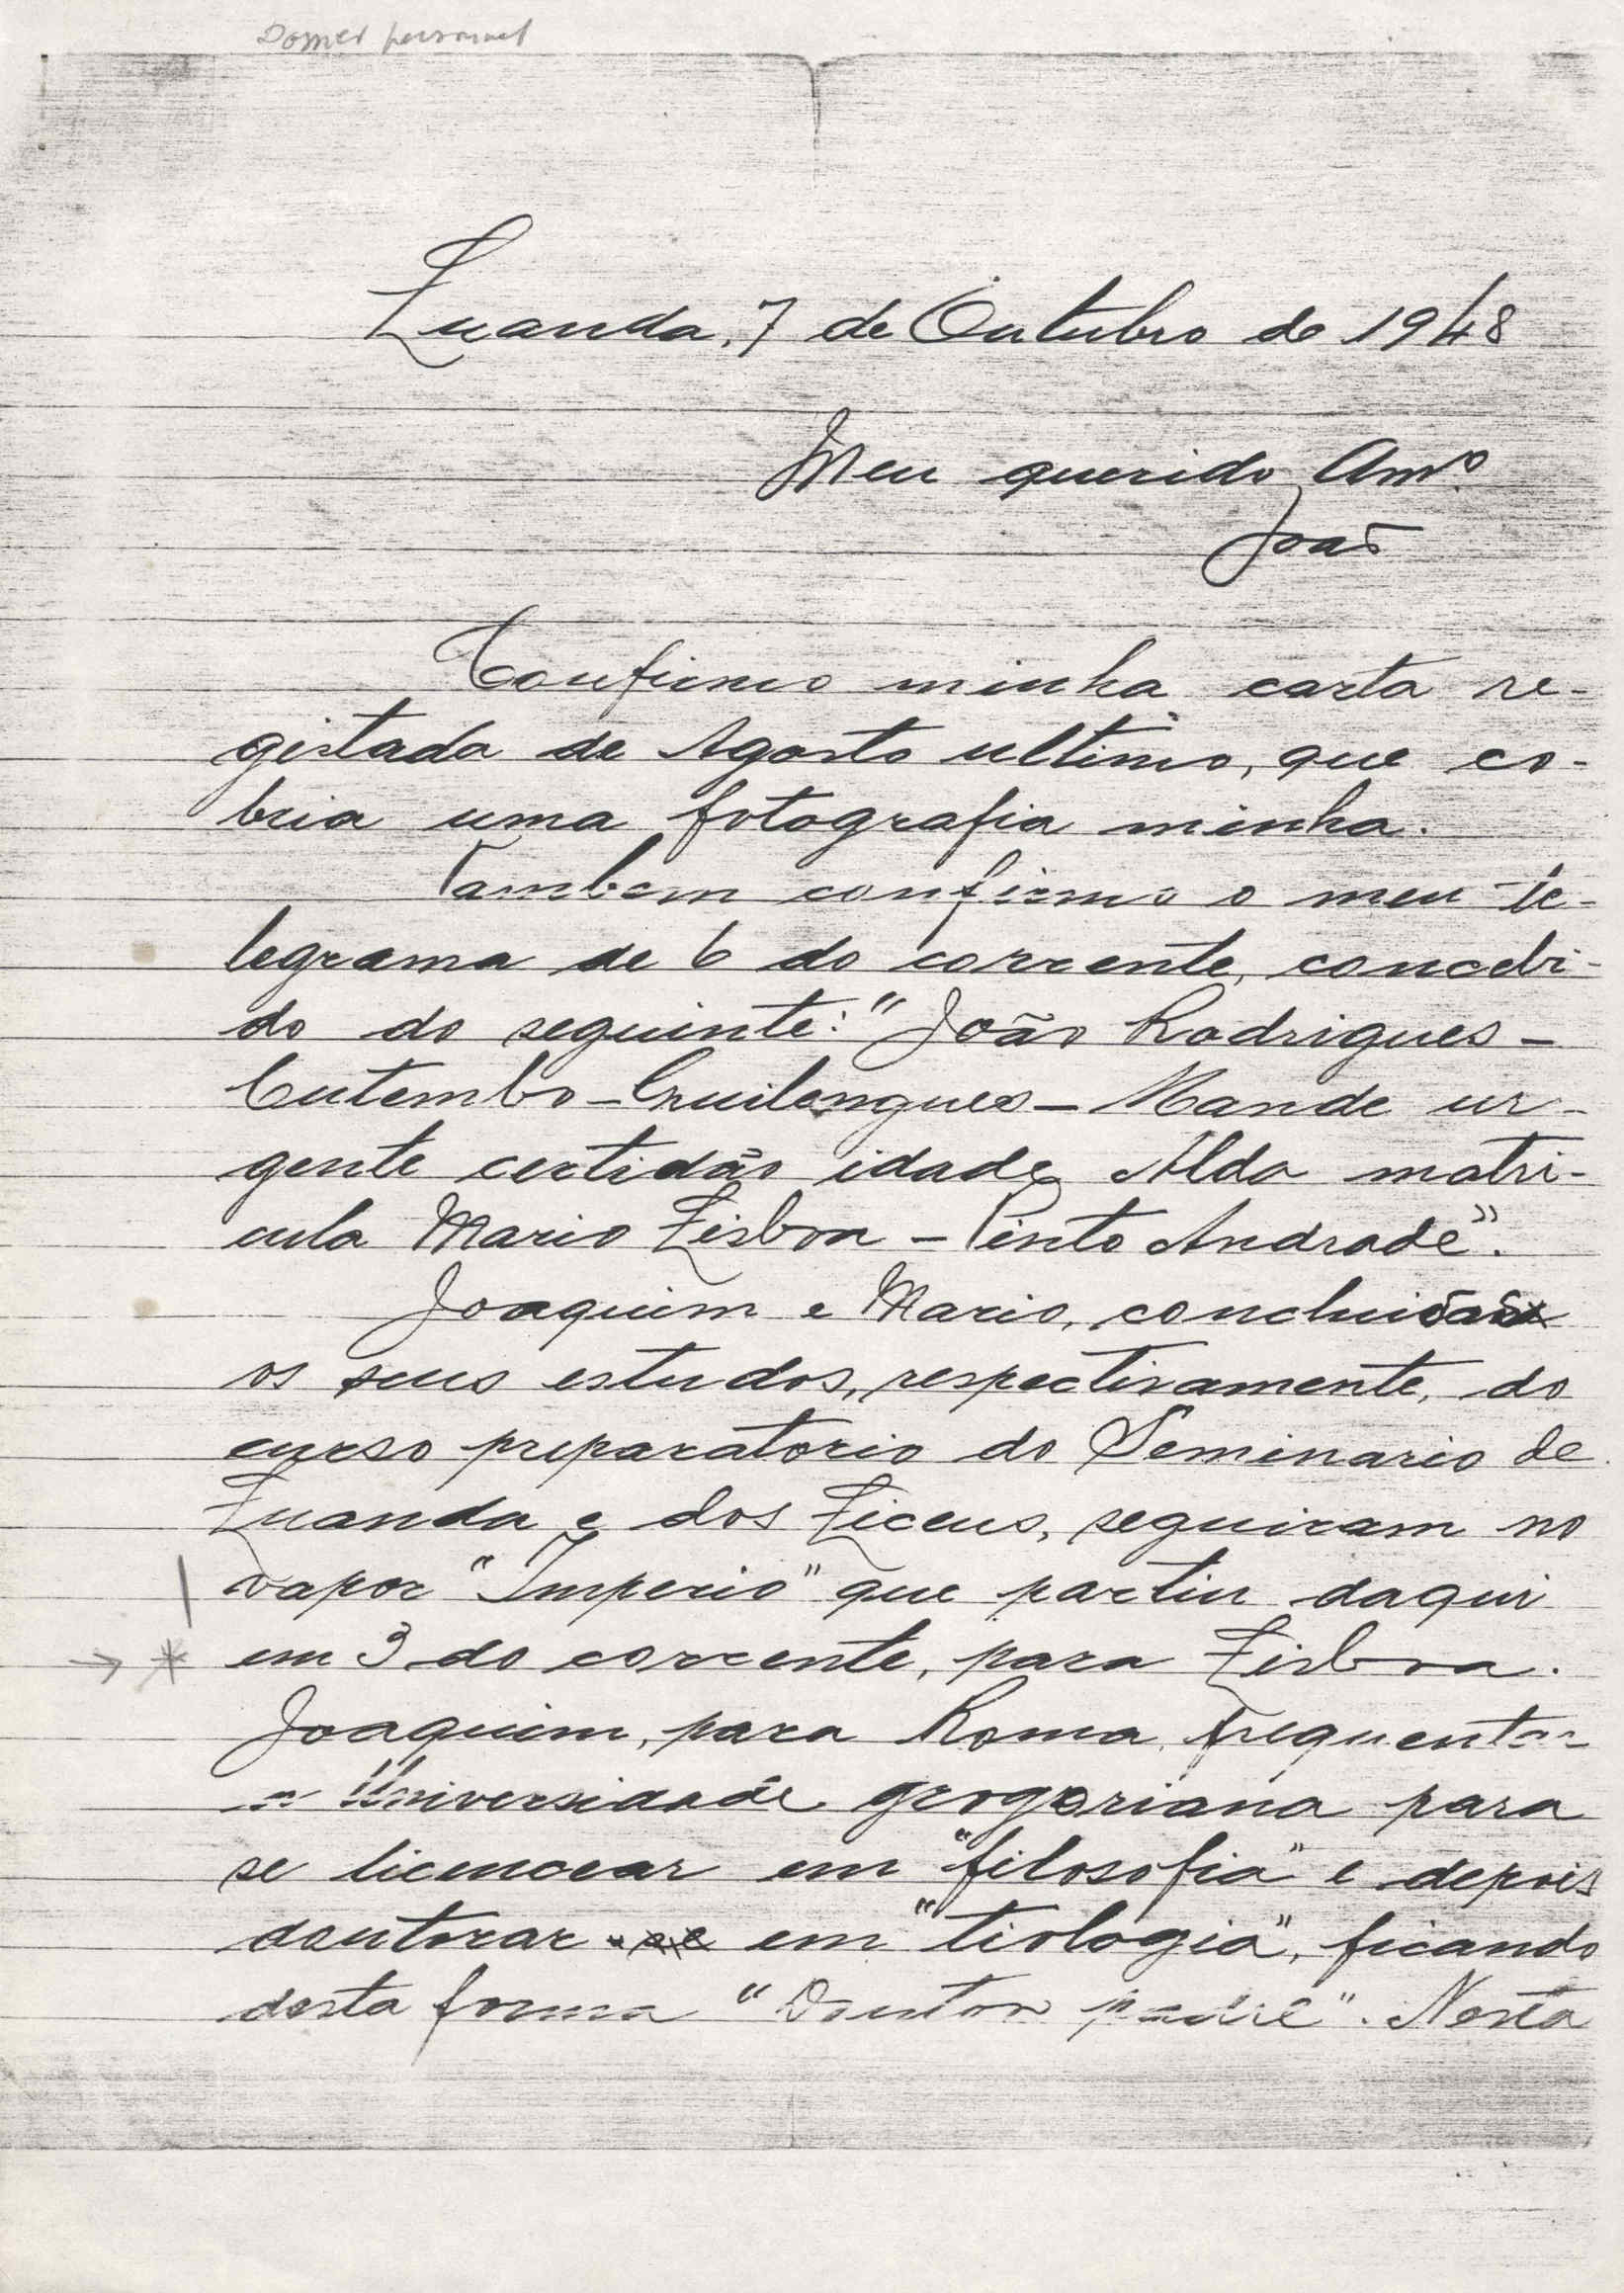 Dossier personnel
Luanda, 7 de Outubro de 1948
Meu querido Amº
João
Confirmo minha carta re-
gistada de Agosto ultimo, que co-
bria uma fotografia minha.
Tambem confirmo o meu te-
legrama de 6 do corrente, concebi-
do do seguinte: "João Rodrigues -
Cutembo - Quilengues - Mande ur-
gente certidão idade Alda matri-
cula Mario Lisboa - Pinto Andrade".
Joaquim e Mario,
os seus estudos, respectivamente, do
curso preparatorio do Seminario de
Luanda e dos Liceus, seguiram no
vapor "Imperio" que partiu daqui
em 3 do corrente, para Lisboa.
Joaquim, para Roma, frequentar
a Universidade gregoriana para
se licencear em "filosofia" e depois
doutorar em "tiologia", ficando
desta forma "Doutor padre". Nesta